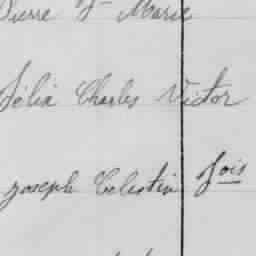 Pierre Jn Marie
Félix Charles Victor
Joseph Célestin fois